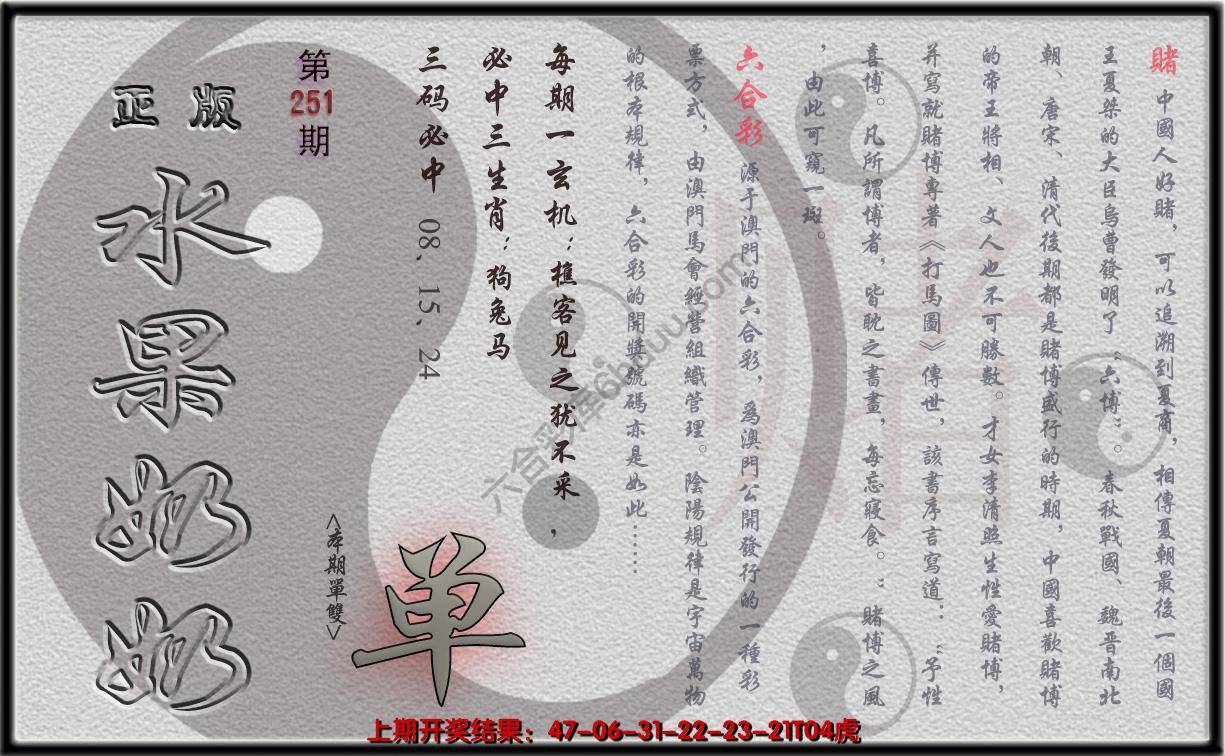 賭 中國人好賭，可以追溯到夏商，相傳夏朝最後一個國
王夏桀的大臣烏曹發明了“六博”。春秋戰國、魏晋南北
朝、唐宋、清代後期都是賭博盛行的時期，中國喜歡賭博
的帝王將相、文人也不可勝數。才女李清照生性愛賭博，
并寫就賭博專著《打馬圖》傳世，該書序言寫道：“予性
喜博。凡所謂博者，皆耽之書畫，每忘寢食。”賭博之風
，由此可窺一斑。
六合彩 源于澳門的六合彩，為澳門公開發行的一種彩
票方式，由澳門馬會經營組織管理。陰陽規律是宇宙萬物
的根本規律，六合彩的開獎號碼亦是如此……
每期一玄机：樵客见之犹不采，
必中三生肖：狗兔马
三码必中 08、15、24
第251期
正版
水果奶奶
<本期單雙>
单
賭
六合彩库6huuu.com
上期开奖结果：47-06-31-22-23-21T04虎